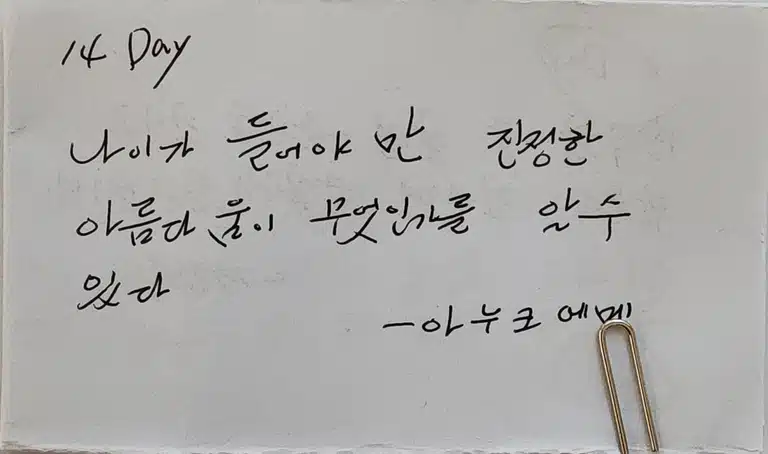 14 Day
나이가 들어야 만 진정한
아름다움이 무엇인가를 알 수
있다
- 아누크 에메